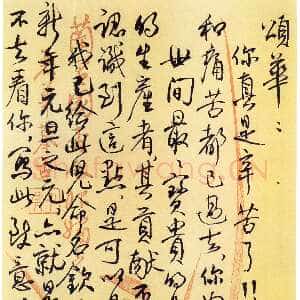 頌華：
你真是辛苦了!!
和痛苦都已過去,你
世间最最寶贵的
的生產者其貢献不
認識到這點,是可以
我已给此兒命名欽
新年元旦之元,亦就是
不去看你寫此段意